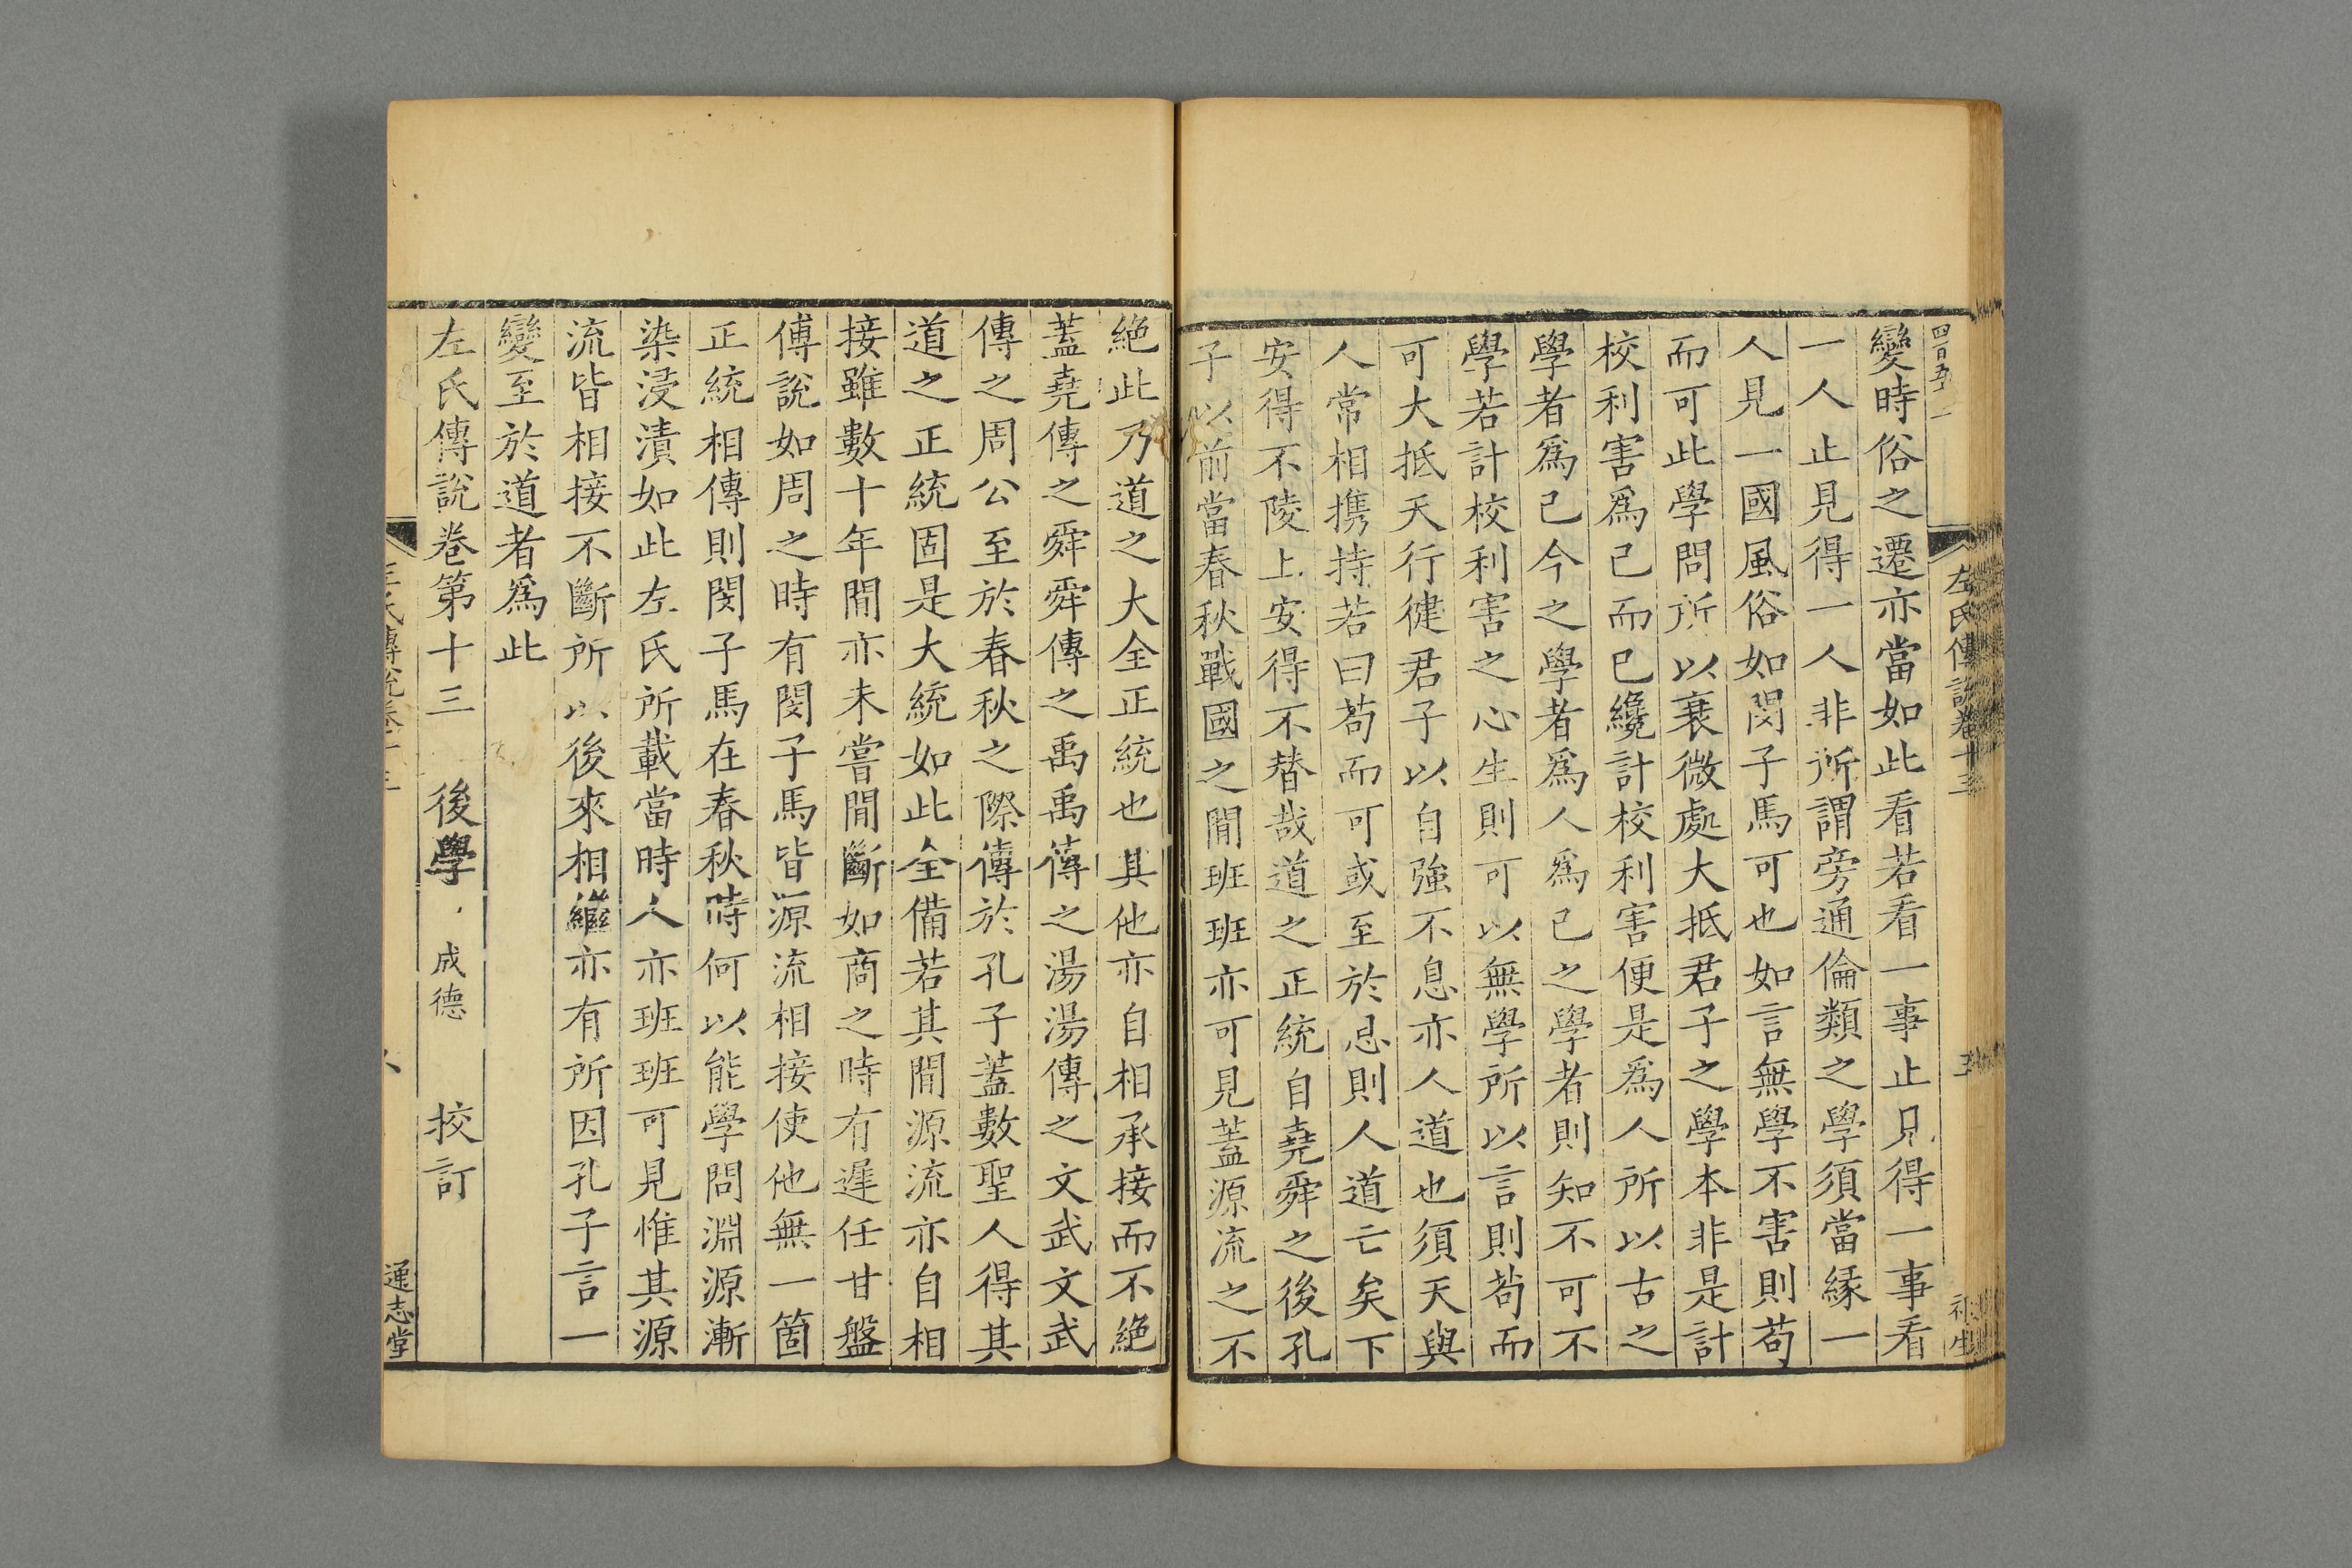 變時俗之遷亦當如此看若看一事止只得一事看
一人止見得一人非所謂旁通倫類之學須當緣一
人見一國風俗如閔子馬可也如言無學不害則苟
而可此學問所以衰微處大抵君子之學本非是計
校利害爲己而已纔計校利害便是爲人所以古之
學者爲己今之學者爲人爲己之學者則知不可不
學若計校利害之心生則可以無學所以言則苟而
可大抵天行健君子以自強不息亦人道也須天與
人常相携持若曰苟而可或至於忌則人道亡矣下
安得不陵上安得不替哉道之正統自堯舜之後孔
子以前當春秋戰國之閒班班亦可見蓋源流之不
絕此乃道之大全正統也其他亦自相承接而不絕
蓋堯傳之舜舜傳之禹禹傳之湯湯傳之文武文武
傳之周公至於春秋之際傳於孔子蓋數聖人得其
道之正統固是大統如此全備若其閒源流亦自相
接雖數十年閒亦未嘗閒斷如商之時有遲任甘盤
傅說如周之時有閔子馬皆源流相接使他無一箇
正統相傳則閔子馬在春秋時何以能學問淵源漸
染浸漬如此左氏所載當時人亦班班可見惟其源
流皆相接不斷所以後來相繼亦有所因孔子言一
變至於道者爲此
左氏傳說卷第十三 後學 成德 校訂
左氏傳說卷十三
通志堂